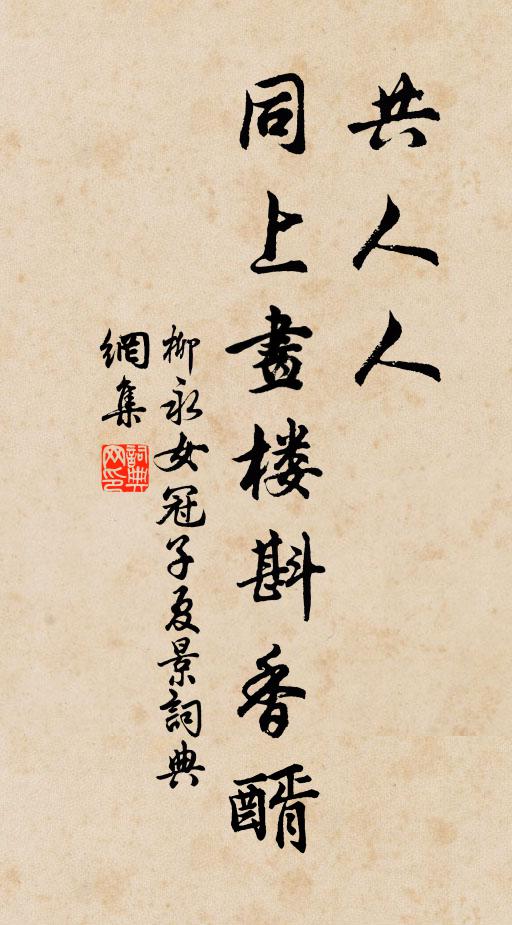 共人人
同上畫楼斟香醑
柳永女冠子夏景詞典
網集
詞典网印